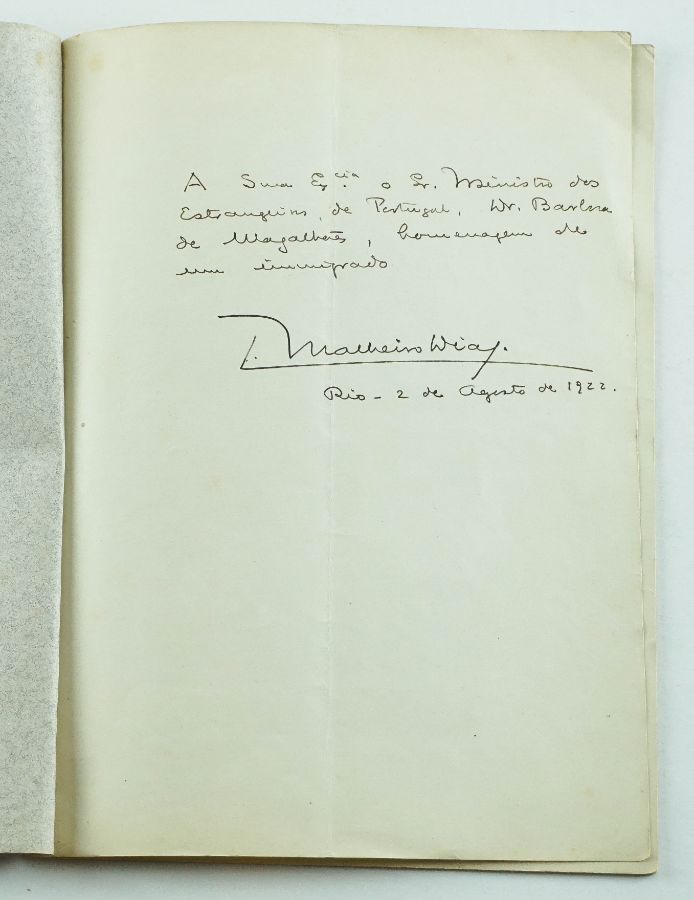 A Sua Ex.cia o Sr. Ministro dos
Estrangeiros, de Portugal, Dr. Barbosa
de Magalhães, homenagem de
um immigrado
C. Malheiro Dias.
Rio - 2 de Agosto de 1922.